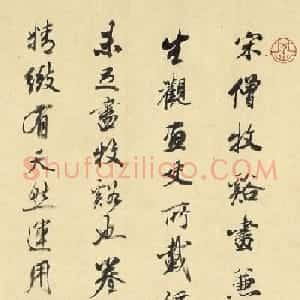 宋僧牧谿畫兼
生觀画史所載
未畫牧谿卷
精緻有天然運用
Shufaziliao.com